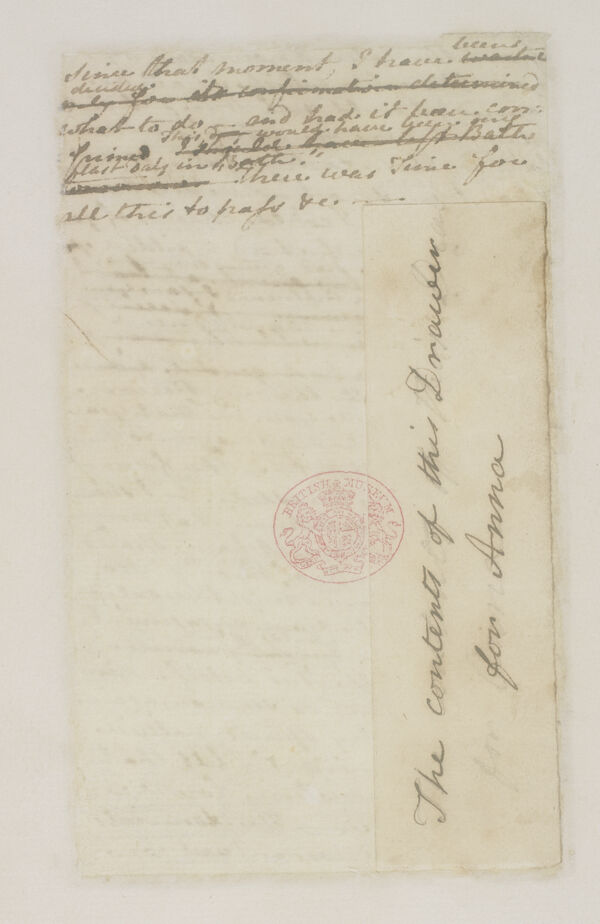 been
Since that moment, I have wanted
decided
only for its confirmation determined
what to do – and had it been con:
This would have been my
:firmed I should have left Bath
last day in Bath."
There was Time for
all this to pass &c.
The contents of this Drawer
for Anna
BRITISH MUSEUM